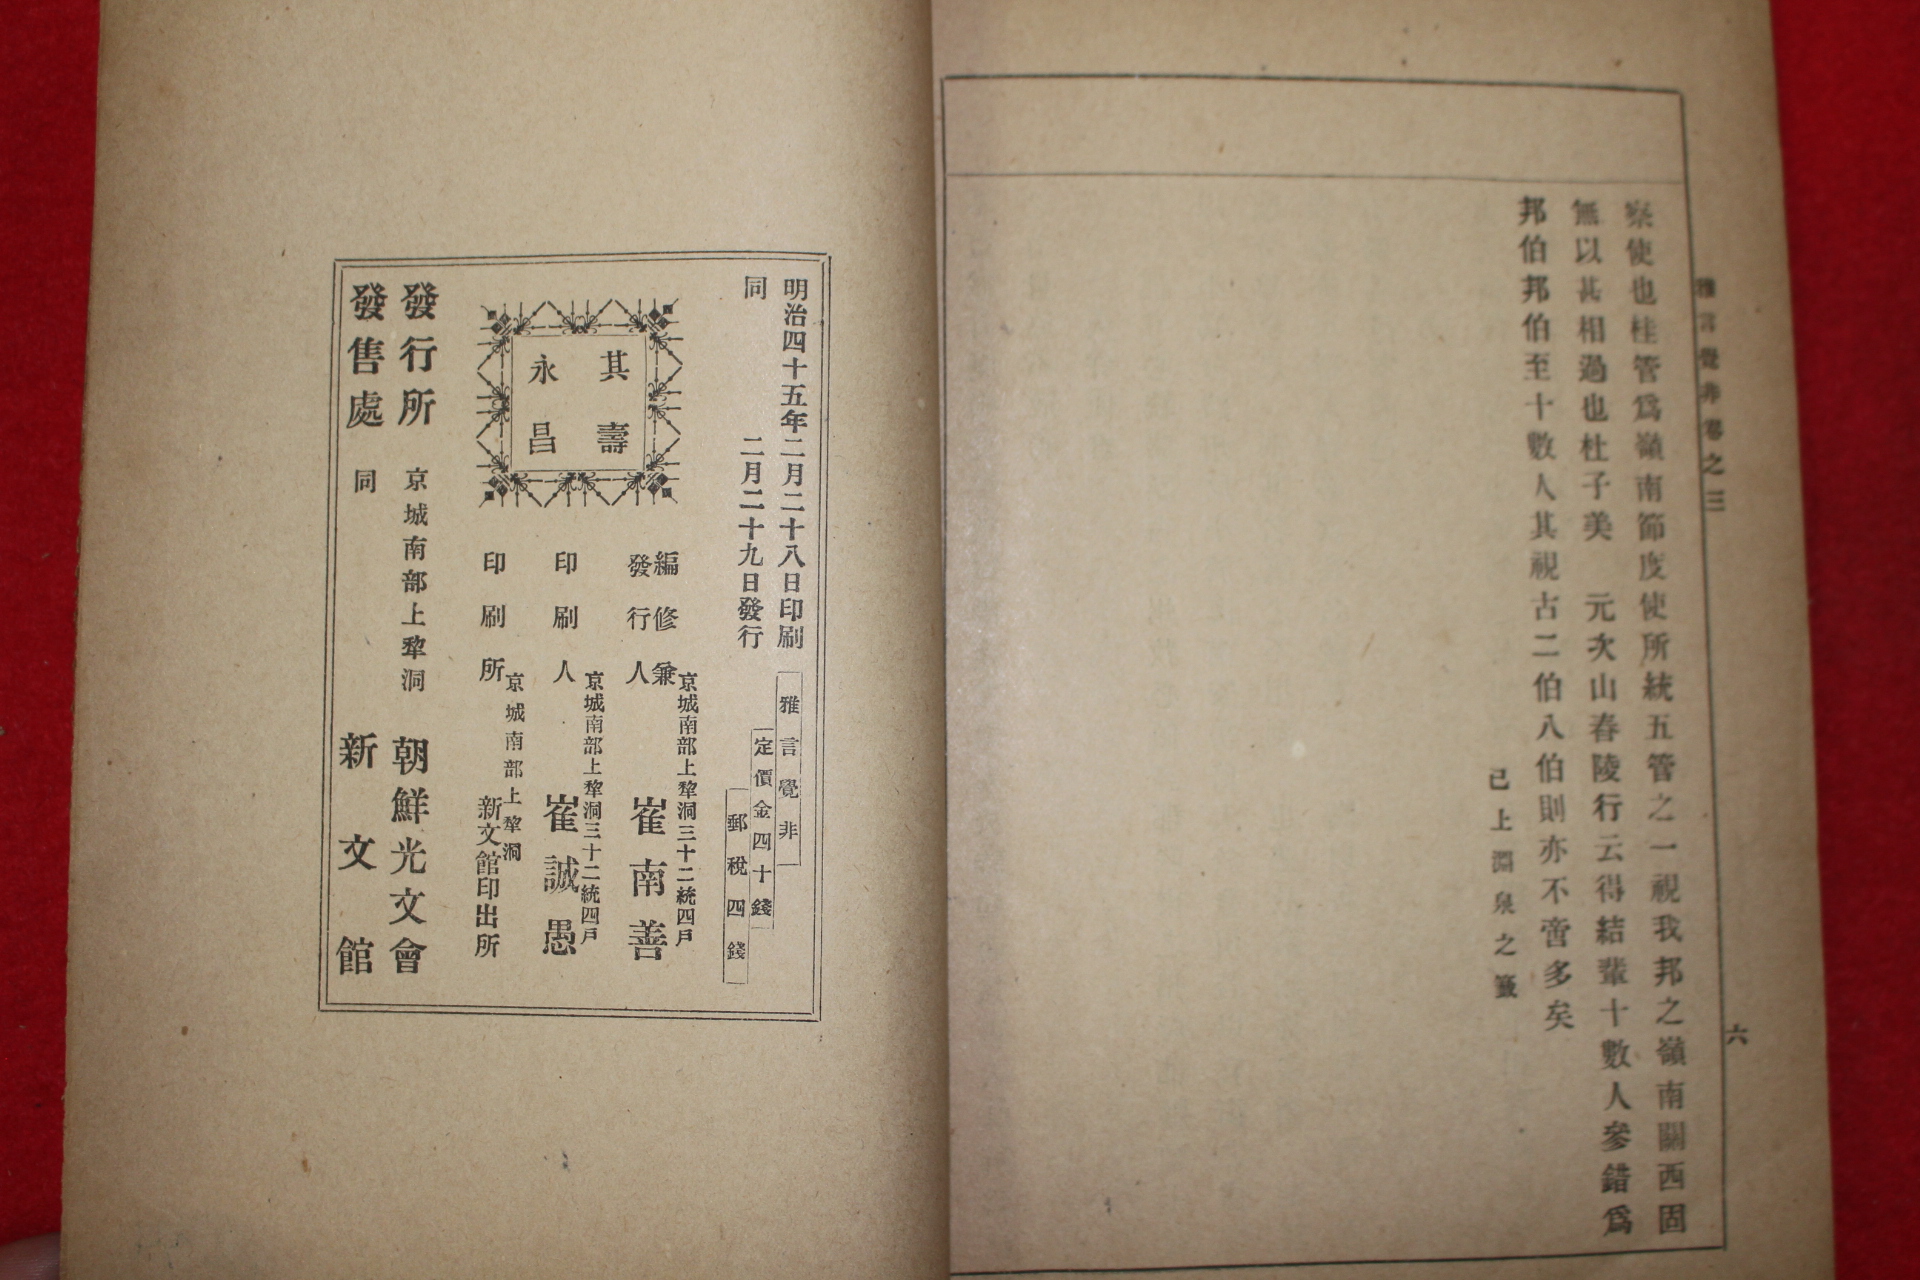 雅言覺非卷之三
六
察使也桂管爲嶺南節度使所統五管之一視我邦之嶺南關西固
無以甚相過也杜子美 元次山春陵行云得結輩十數人參錯爲
邦伯邦伯至十數人其視古二伯八伯則亦不啻多矣
已上淵泉之籤
明治四十五年二月二十八日印刷
同 二月二十九日發行
雅言覺非
定價金四十錢
郵稅四錢
其壽
永昌
京城南部上犂洞三十二統四戶
編修兼
發行人 崔南善
京城南部上犂洞三十二統四戶
印刷人 崔誠愚
京城南部上犂洞
印刷所 新文館印出所
發行所 京城南部上犂洞 朝鮮光文會
發售處 同 新文館